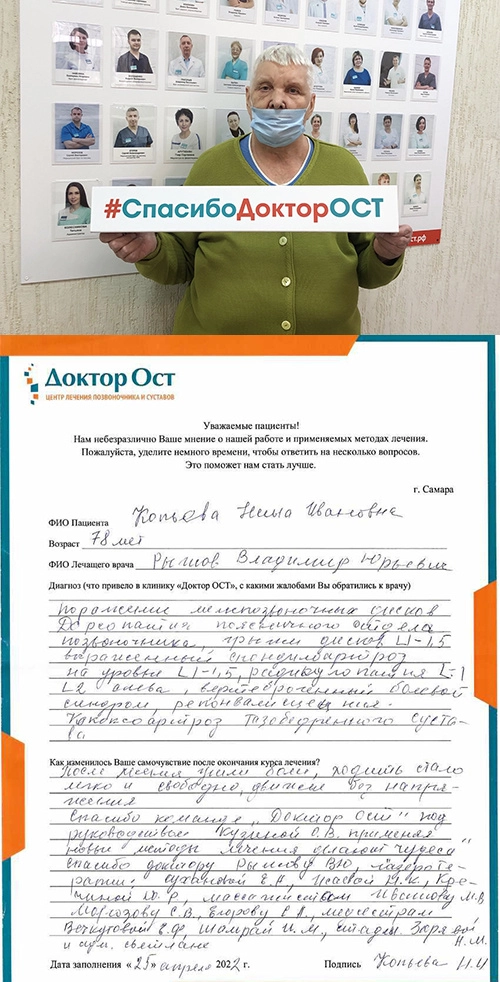 #СпасибоДокторОСТ
ост.рф
Доктор Ост
ЦЕНТР ЛЕЧЕНИЯ ПОЗВОНОЧНИКА И СУСТАВОВ
Уважаемые пациенты!
Нам небезразлично Ваше мнение о нашей работе и применяемых методах лечения.
Пожалуйста, уделите немного времени, чтобы ответить на несколько вопросов.
Это поможет нам стать лучше.
г. Самара
ФИО Пациента Копьева Нина Ивановна
Возраст 78 лет
ФИО Лечащего врача Рыжов Владимир Юрьевич
Диагноз (что привело в клинику «Доктор ОСТ», с какими жалобами Вы обратились к врачу)
поражение межпозвоночных дисков
Дорсопатия поясничного отдела
позвоночника, грыжи дисков L1-1,5
выраженный спондилоартроз
на уровне L1-1,5, радикулопатия L-1
L2 слева, вертеброгенный болевой
синдром,
Кококсоартроз тазобедренного суста-
ва
Как изменилось Ваше самочувствие после окончания курса лечения?
После лечения ушли боли, ходить стало
легко и свободно, движем без напря-
жения
Спасибо команде "Доктор Ост" под
руководством Кузиной О.В. применяя
новые методы лечения делают "чудеса"
Спасибо доктору Рыжову ВЮ, лазероте-
рапии: Сухановой Е.А, Исаевой М.К,
Ю.Р, массажистам М.В
Морозову С.В, Егорову Е А, медсестрам
Е.Ф, Шамрай И.М,
Н.М.
и адм. Светлане
Дата заполнения «25» апреля 2022 г Подпись Копьева Н.И